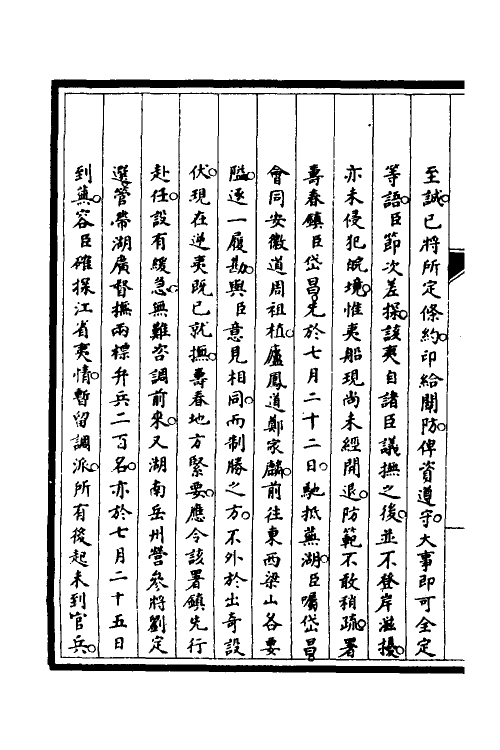 至誠。已將所定條約。印給關防。俾資遵守。大事即可全定
等語。臣節次差探。該夷自諸臣議撫之後。並不登岸滋擾。
亦未侵犯皖境。惟夷船現尚未經開退。防範不敢稍疏。署
壽春鎮臣岱昌。先於七月二十二日。馳抵蕪湖。臣囑岱昌。
會同安徽道周祖植。廬鳳道鄭家麟。前往東西梁山各要
隘。逐一履勘。與臣意見相同。而制勝之方。不外於出奇設
伏。現在逆夷既已就撫。壽春地方緊要。應令該署鎮先行
赴任。設有緩急。無難咨調前來。又湖南岳州營參將劉定
選。管帶湖廣督撫兩標弁兵二百名。亦於七月二十五日
到蕪。容臣確探江省夷情。暫留調派。所有後起未到官兵。